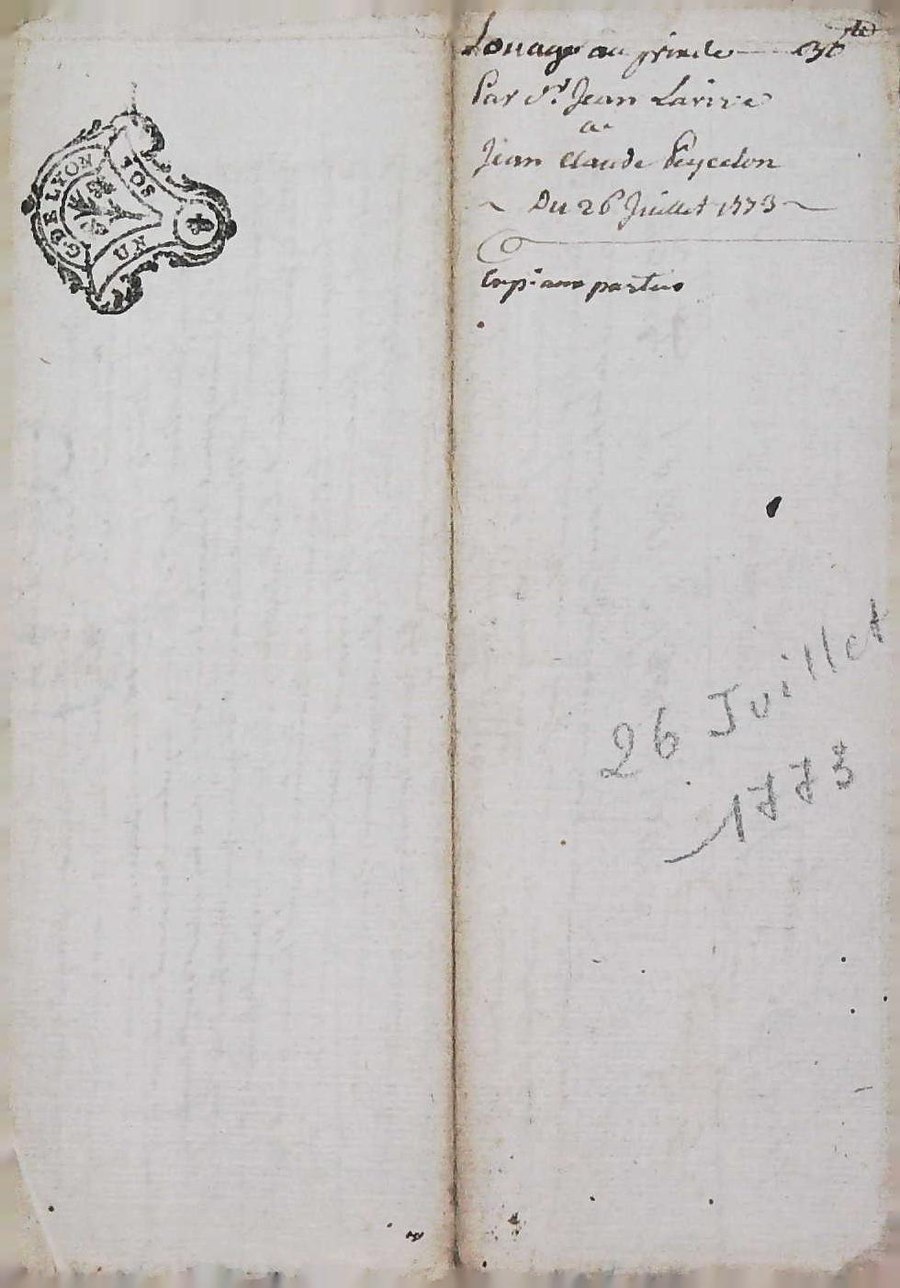 G DE LYON
UN SOL
Louage au prix de 30 lt
Par Sr. Jean Larive
a
Jean Claude Peycelon
Du 26 Juillet 1773
Exp. aux parties
26 Juillet
1773